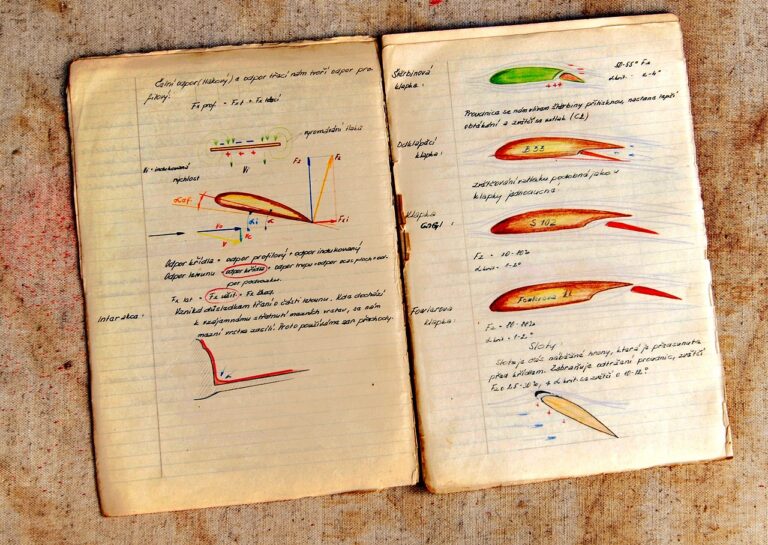 Čelní odpor (tlakový) a odpor třecí nám tvoří odpor pro-
filový.
Fx prof. = Fxt + Fx třecí
vyrovnávání tlaků
Vi = indukovaná
rychlost
Vi
Fz
Fz
Fxi
αi
α
Odpor křídla = odpor profilový + odpor indukovaný
Odpor letounu = odpor křídla + odpor trupu + odpor ocas. ploch + od-
por podvozku.
Fx let = Fx užit + Fx škod.
Interakce:
Vzniká důsledkem tření o části letounu. Kde dochází
k vzájemnému střetnutí mezních vrstev, se nám
mezní vrstva zesílí. Proto používáme
přechody.
Štěrbinová
klapka:
Proudnice se nám vlivem štěrbiny přitáhnou, nastane lepší
obtékání a zvětší se vztlak (CZ)
Odklápěcí
klapka:
B 33
zvětšování vztlaku podobně jako u
klapky jednoduché.
Klapka
S 102
Fz =
Fowlerova
klapka:
Fowlerova
Fz =
Sloty:
Slot je část náběžné hrany, která je předsunuta
před křídlem. Zabraňuje odtržení proudnic, zvětší
Fz o 25-30%, a αkrit. se zvětší o 10-12°